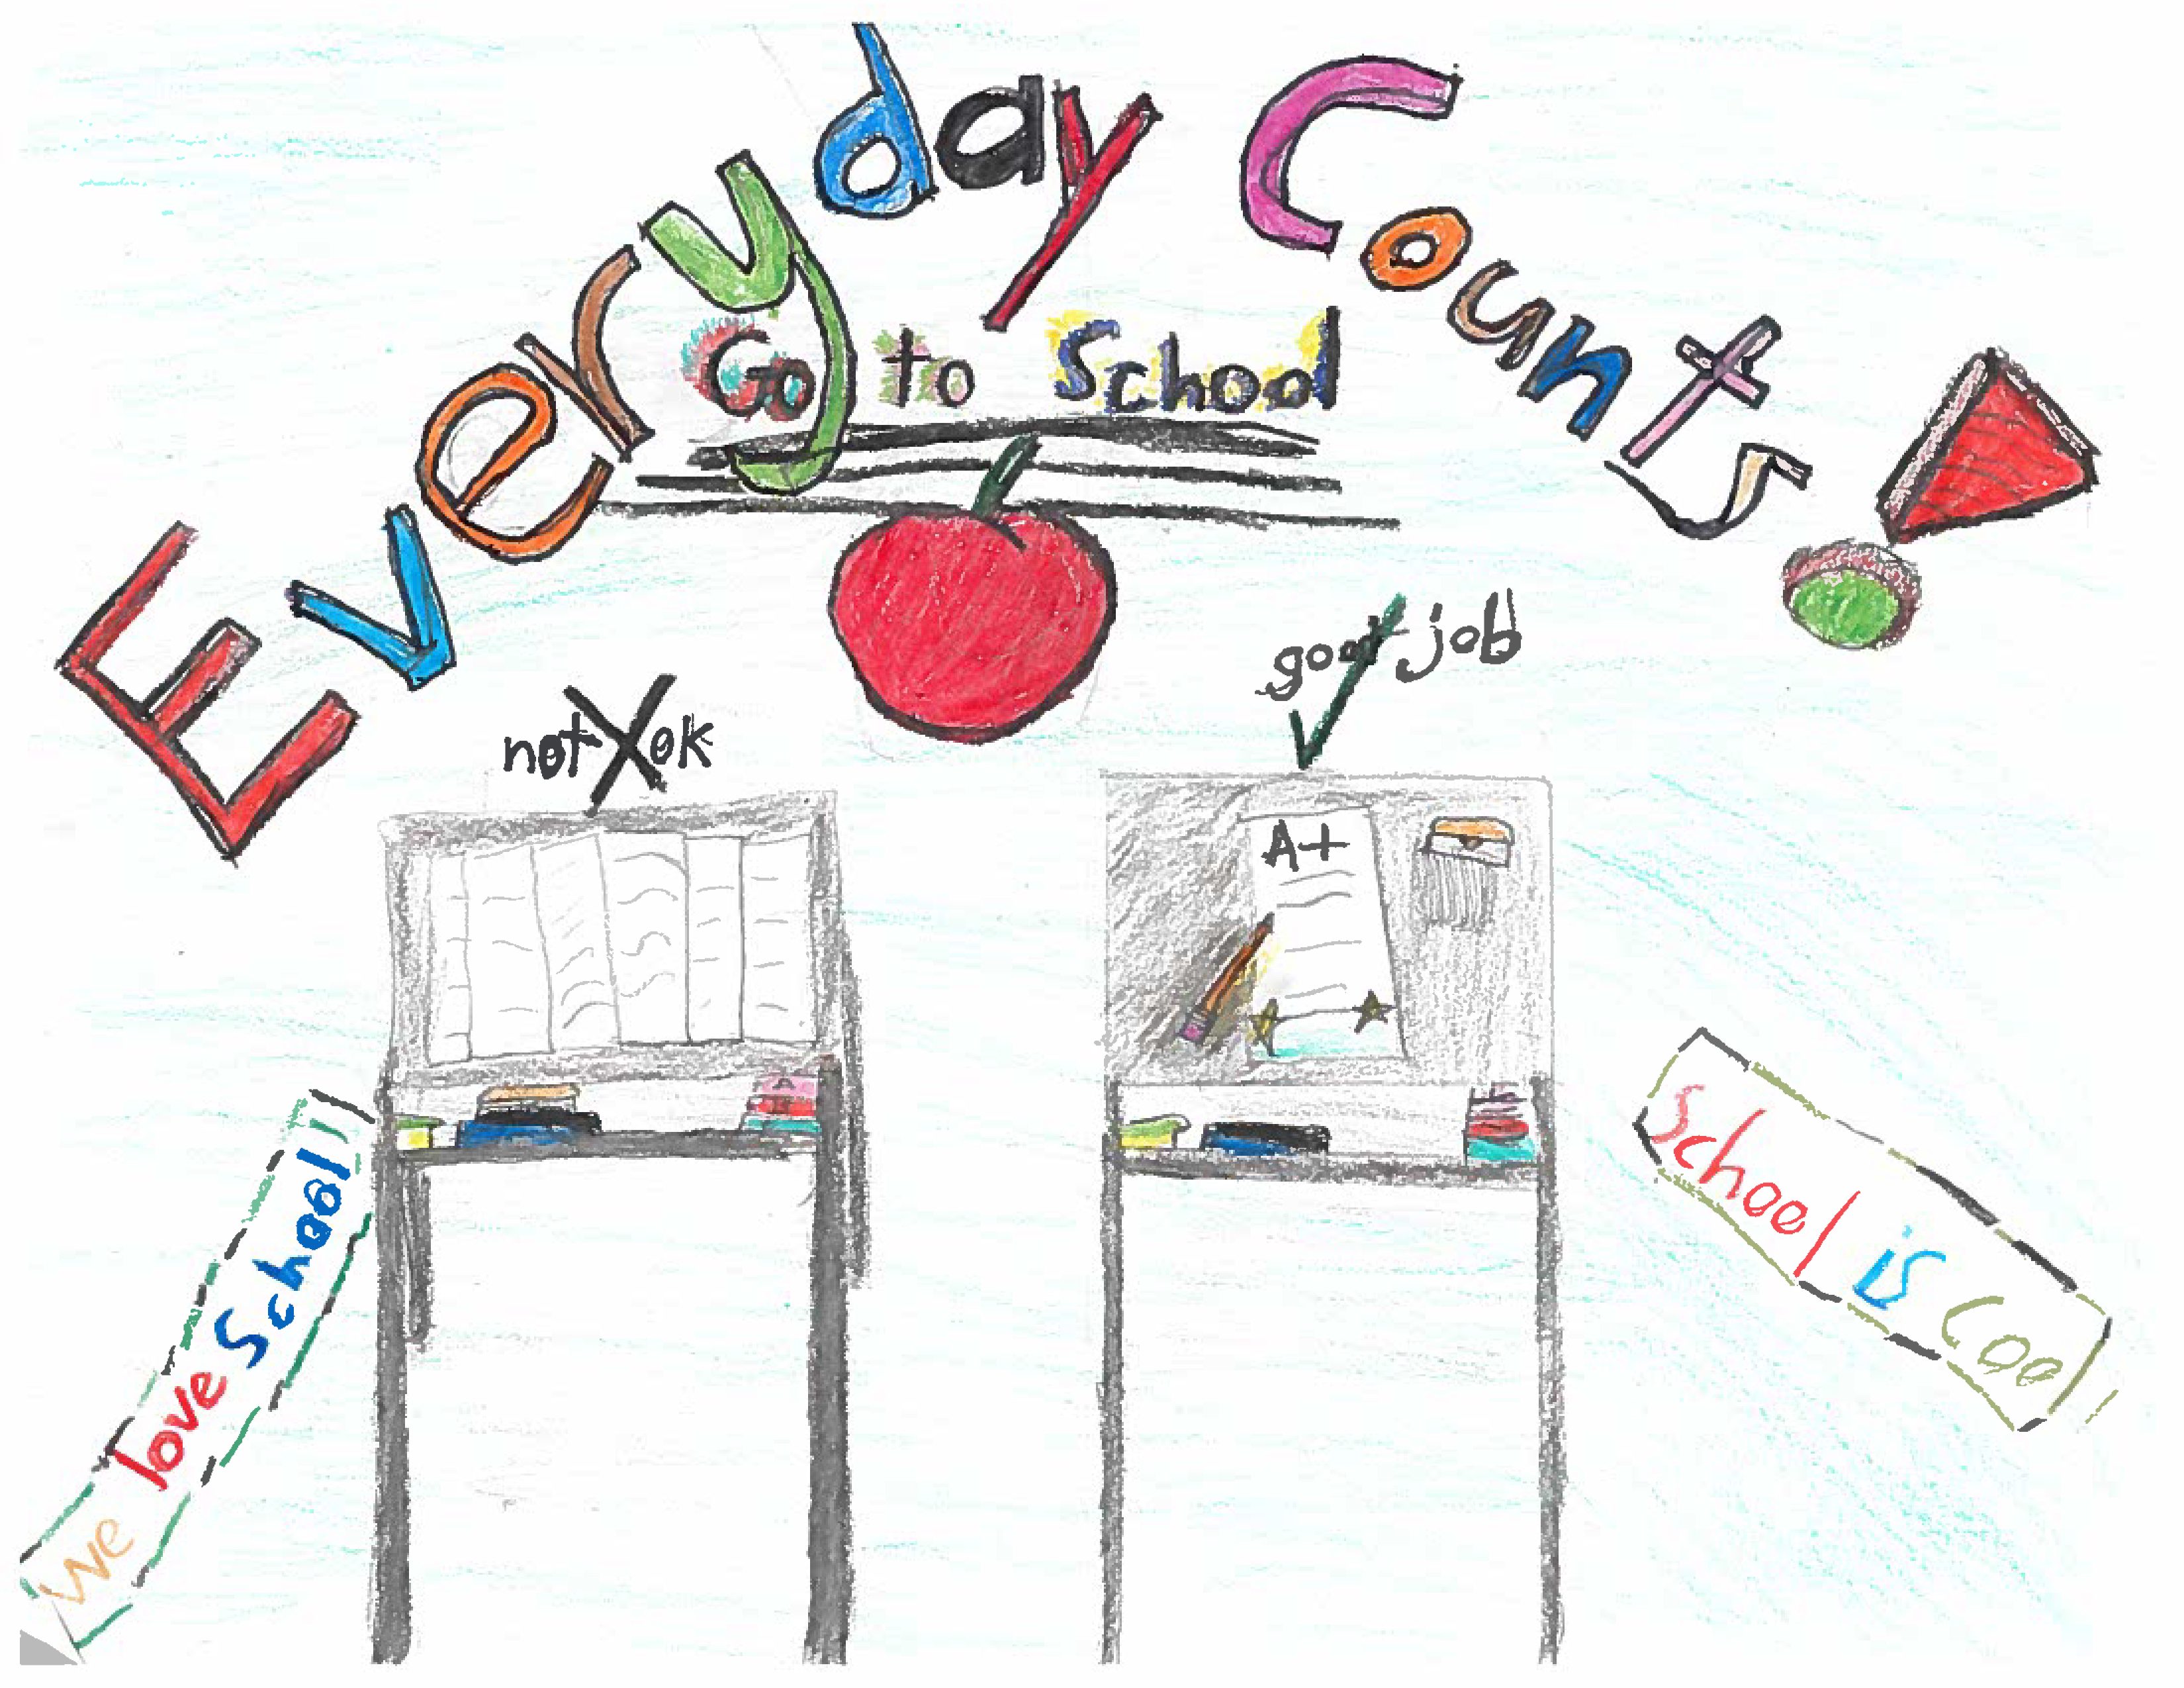 Everyday Counts!
Go to School
not ok
good job
A+
We love School!
School is Cool!